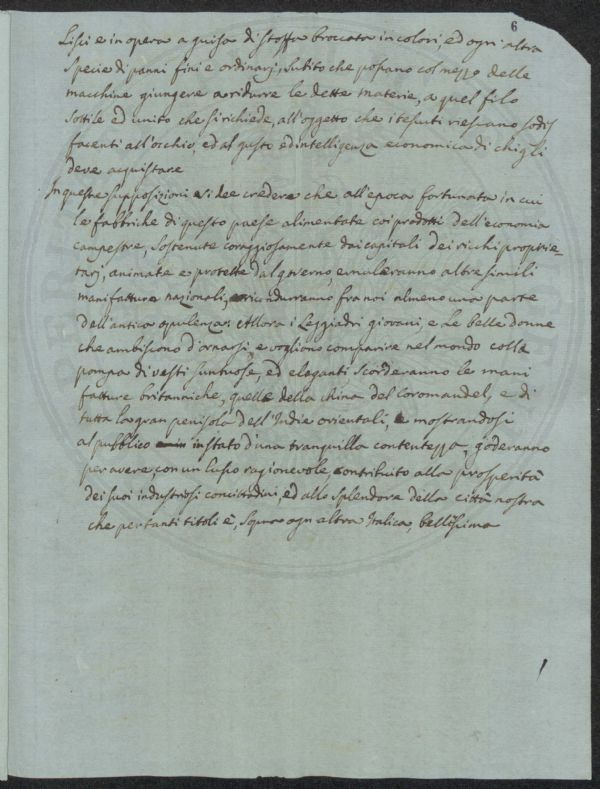 6
Lisci e in opera a guisa di stoffa broccata in colori, ed ogni altra
specie di panni fini e ordinarj, subito che possano col mezzo delle
macchine giungere a ridurre le dette materie, a quel filo
sottile ed unito che si richiede, all'oggetto che i tessuti riescano sodis
facenti all'occhio, ed al gusto ed intelligenza economica di chi gli
deve acquistare
In queste supposizioni si dee credere che all'epoca fortunata in cui
le fabbriche di questo paese alimentate coi prodotti dell'economia
campestre, sostenute coraggiosamente dai capitali dei ricchi proprie=
tarj, animate e protette dal governo, emuleranno altre simili
manifatture nazionali, e ricondurranno fra noi almeno una parte
dell'antica opulenza: Allora i leggiadri giovani, e le belle donne
che ambiscono d'ornarsi, e vogliono comparire nel mondo colla
pompa di vesti suntuose, ed eleganti scorderanno le mani
fatture britanniche, quelle della China del Coromandel, e di
tutta la gran penisola dell'Indie orientali, e mostrandosi
al pubblico in stato d'una tranquilla contentezza, goderanno
per avere con un lusso ragionevole, contribuito alla prosperità
dei suoi industriosi concittadini, ed allo splendore della città nostra
che per tanti titoli è, sopra ogn'altra Italica, bellissima